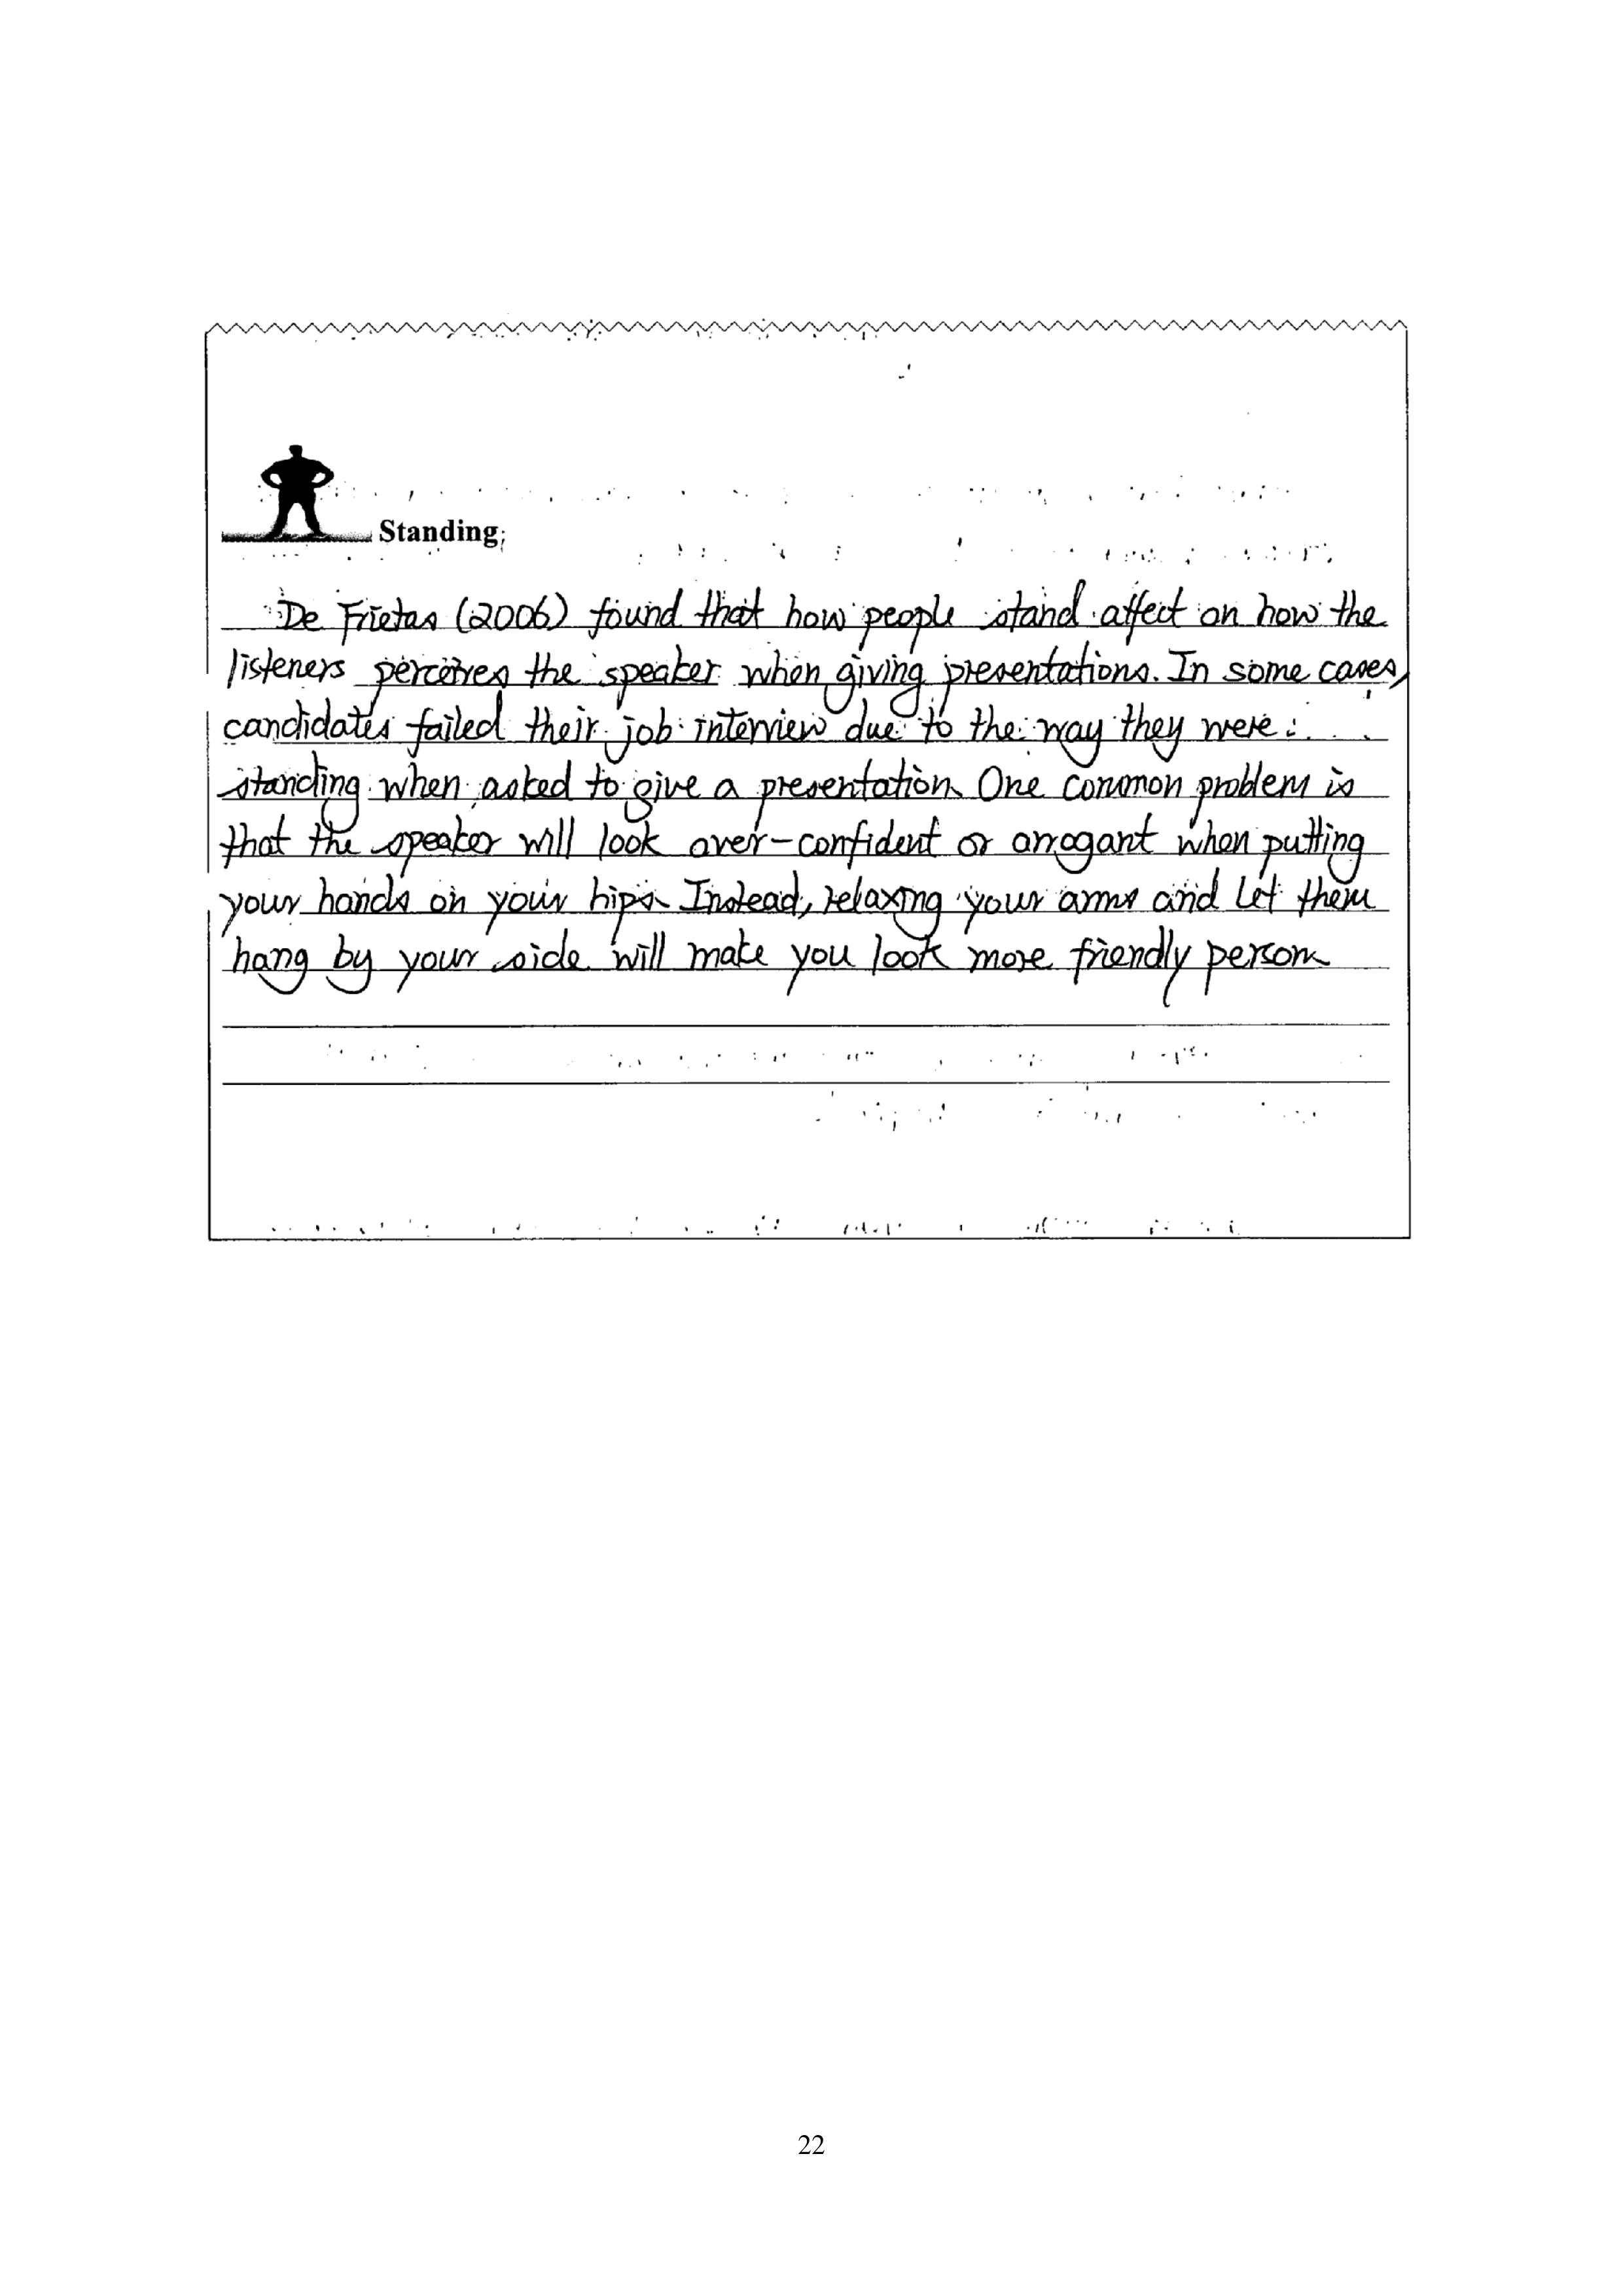 Standing
De Frietas (2006) found that how people stand affect on how the
listeners perceives the speaker when giving presentations. In some cases,
candidates failed their job interview due to the way they were
standing when asked to give a presentation. One common problem is
that the speaker will look over-confident or arrogant when putting
your hands on your hips. Instead, relaxing your arms and let them
hang by your side will make you look more friendly person.
22